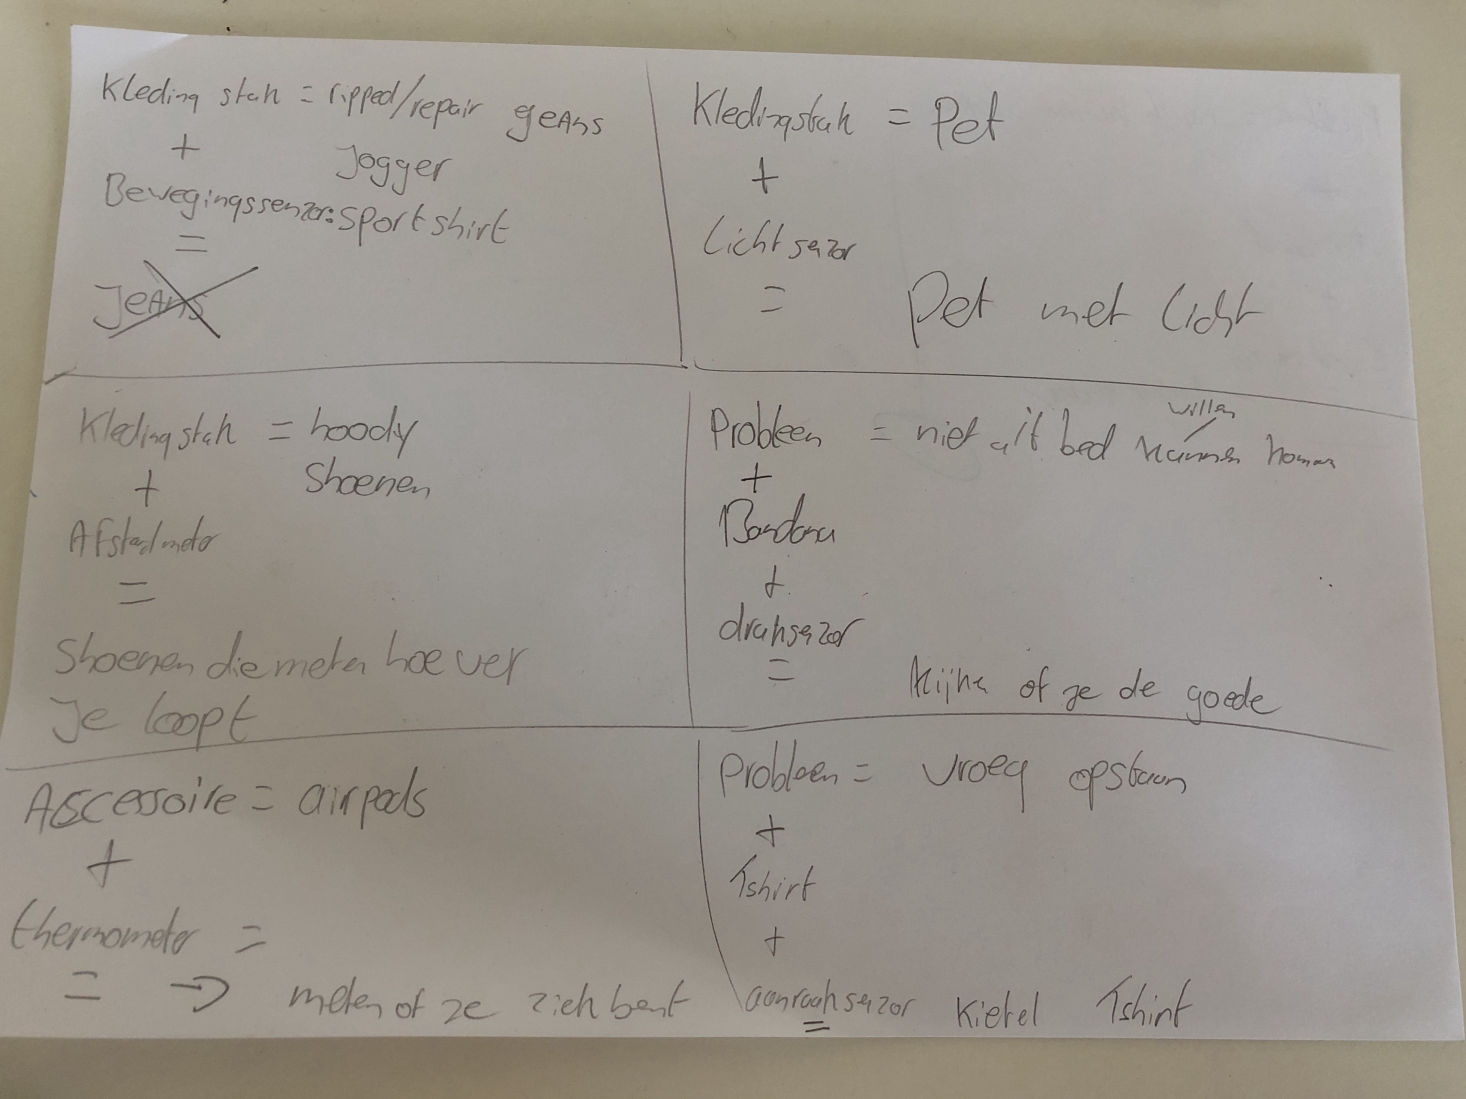 Kleding stuk = ripped/repair jeAns
+
Jogger
Bewegingssenzor: sport shirt
=
JeAns
Kledingstuk = Pet
+
Licht sezor
=
Pet met licht
Kledingstuk = hoody
+
Shoenen
Afstandmeter
=
Shoenen die meten hoe ver
Je loopt
willen
Probleen = niet uit bed kunnen komen
+
Bandana
+
druksezor
=
kijke of ze de goede
Accessoire = airpods
+
thermometer =
= → meten of ze ziek bent
Probleen = vroeg opstaan
+
Tshirt
+
aanraaksezor Kietel Tshirt
=